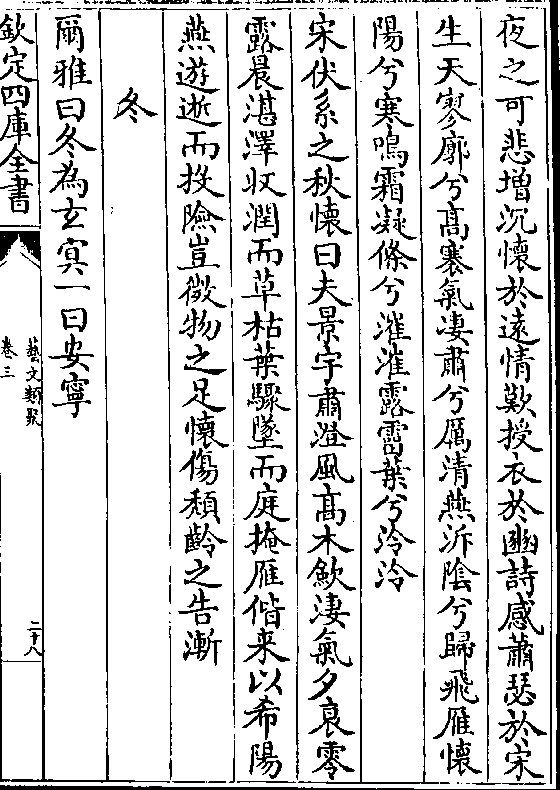 夜之可悲增沉懷於遠情歎授衣於豳詩感蕭瑟於宋
生天寥廓兮髙褰氣凄肅兮厲清燕泝隂兮歸飛雁懷
陽兮寒鳴霜凝條兮漼漼露霑葉兮泠泠
宋伏系之秋懷曰夫景宇肅澄風髙木歛淒氣夕哀零
露晨湛澤収潤而草枯葉驟墜而庭掩雁偕来以希陽
燕遊逝而投險豈微物之足懷傷頽齡之告漸
冬
爾雅曰冬為玄冥一曰安寧
欽定四庫全書
藝文類聚
卷三
二十八